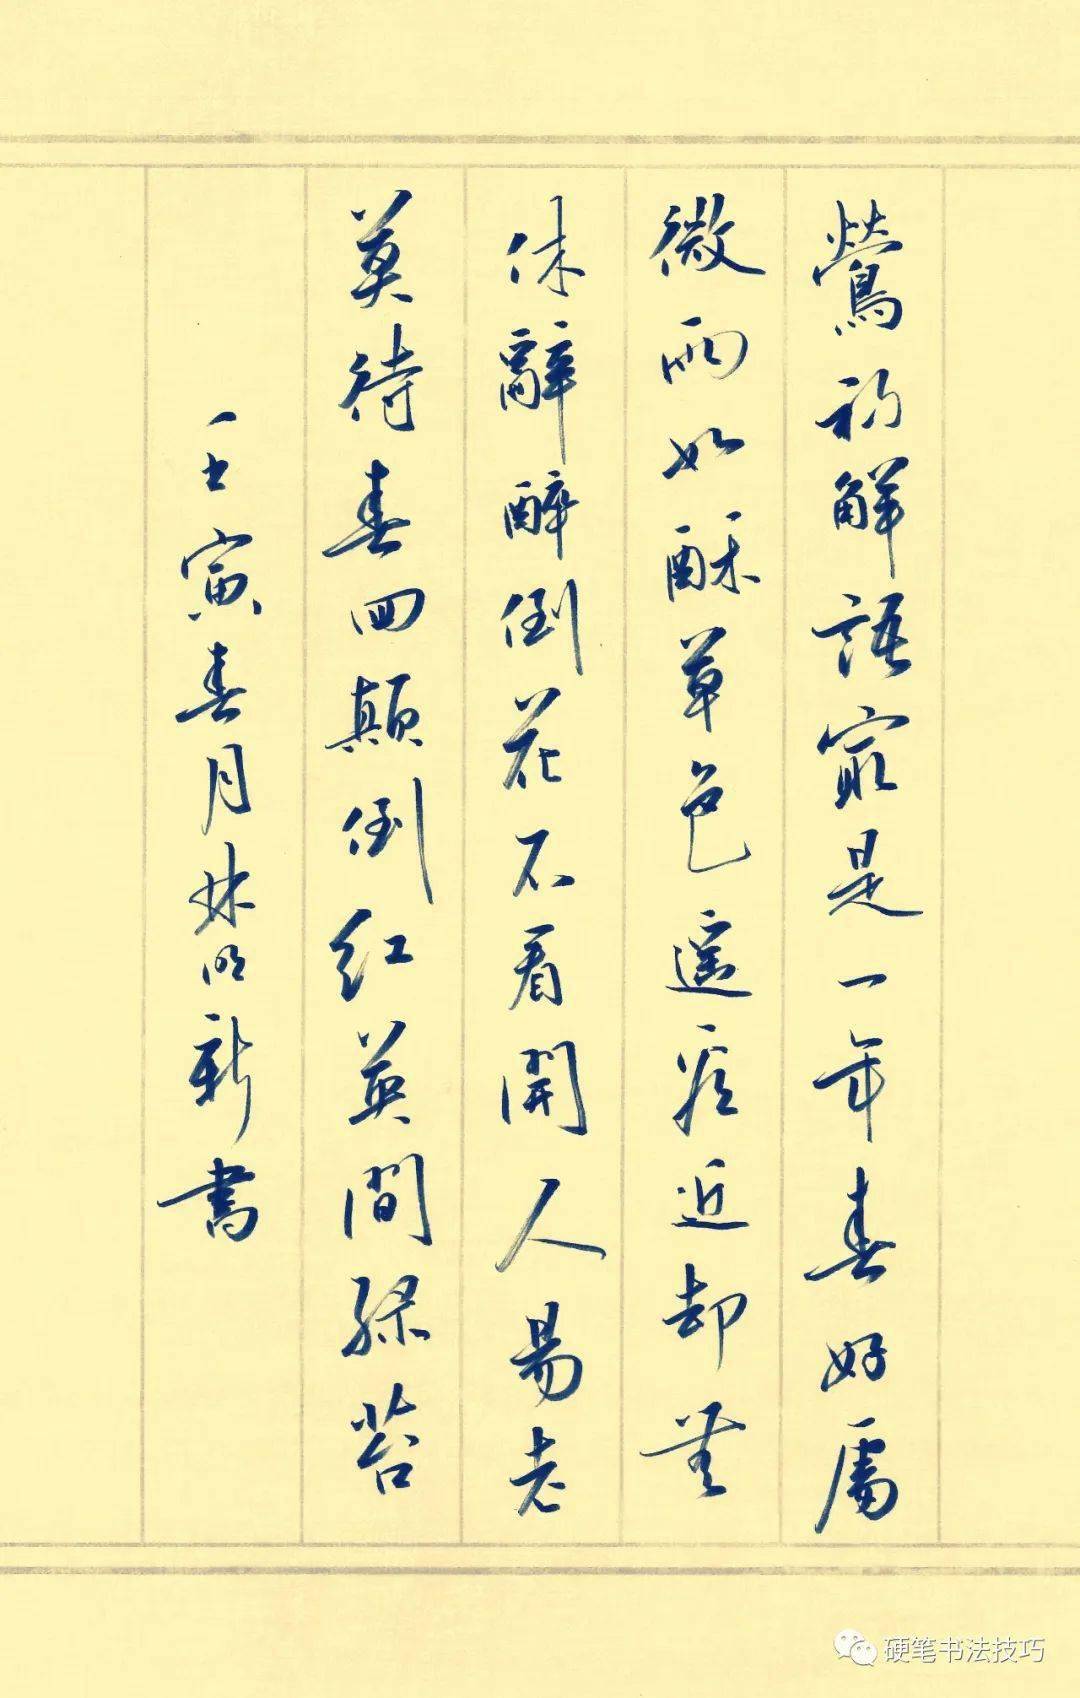 鶯初解語最是一年春好處
微雨如酥草色遥看近却無
休辭醉倒花不看開人易老
莫待春回顛倒红英間緑苔
壬寅春月明新書
硬笔书法技巧